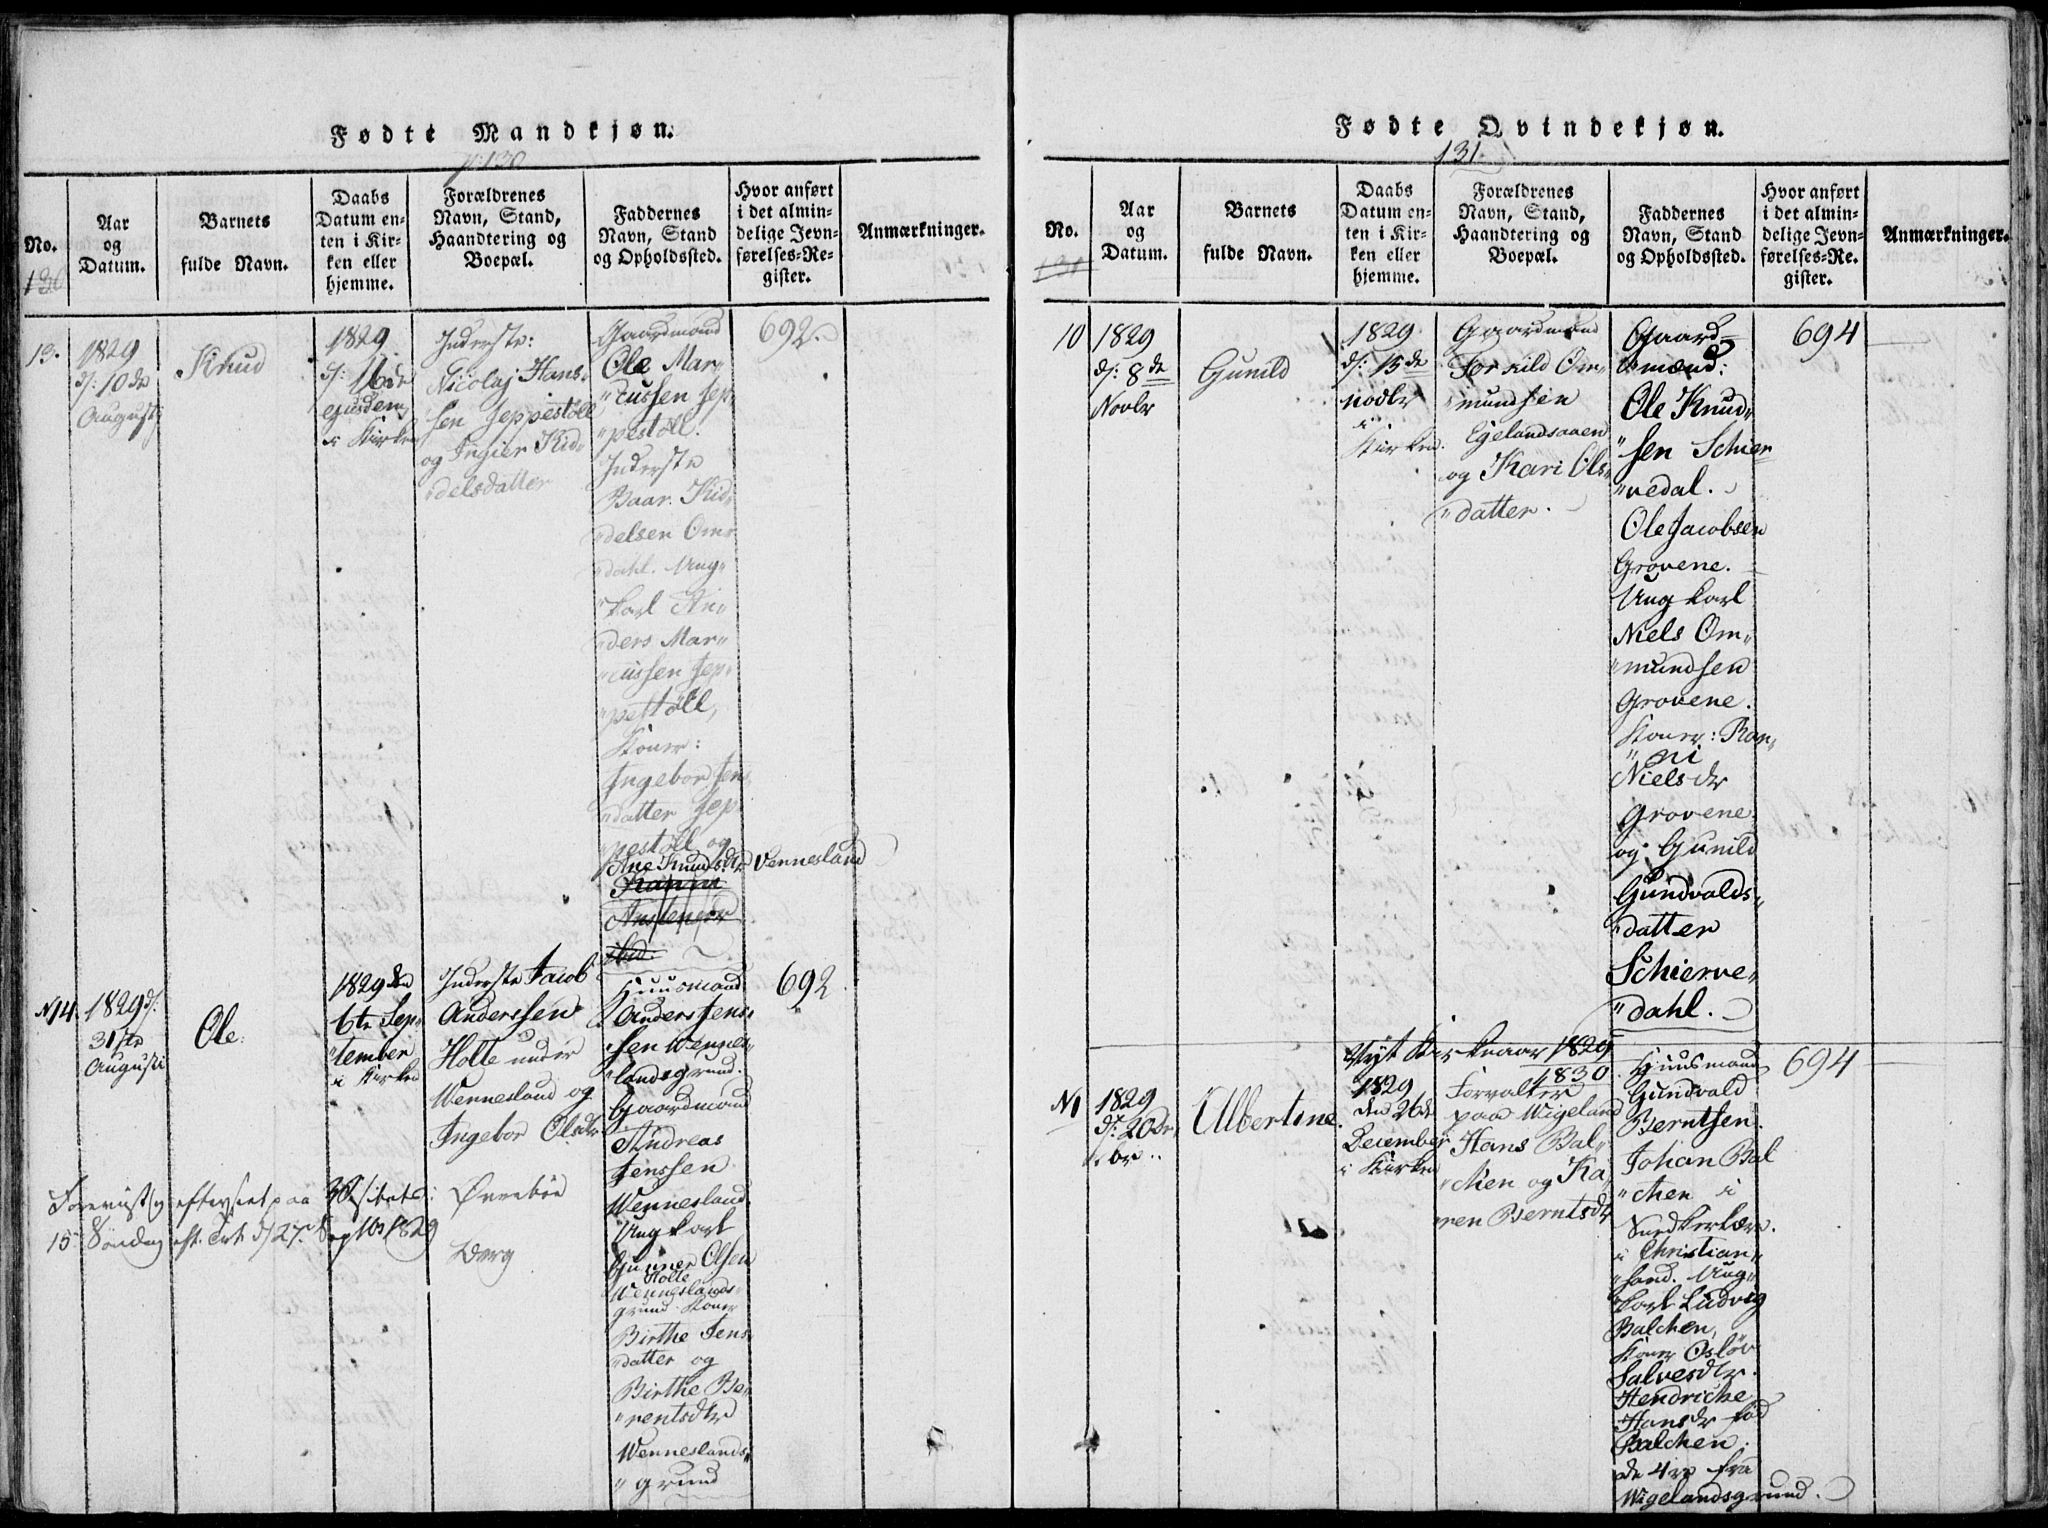 Fødte Mandkjøn.
p: 130
No.
Aar
og
Datum.
Barnets
fulde Navn.
Daabs
Datum en-
ten i Kir-
ken eller
hjemme.
Forældrenes
Navn, Stand,
Haandtering og
Boepæl.
Faddernes
Navn, Stand
og Opholdssted.
Hvor anført
i det almin-
delige Jevn-
førelses-Re-
gister.
Anmærkninger.
130
13.
1829
d: 10de
August
Knud
1829
d: 16de
ejusdem
i Kirken
Inderste:
Nicolaj Hans-
sen Jeppestøll
og Ingier Kid-
delsdatter
Gaardmand
Ole Mar-
cussen Jep-
pestøll.
Inderste
Baar. Kid-
delsen Om-
dahl. Ung-
karl An-
ders Mar-
cussen Jep-
pestøll,
Koner:
Ingebor Jens
datter Jep
pestøll og
Ane Knudsdtr Vennesland
ibid.
692.
N14.
1829 d:
31te
Augusti
Ole.
1829 den
6te Sep-
tember
i Kirken
Inderste Jacob
Anderssen
Holte under
Wennesland og
Ingebor Olsdtr
Huusmand
Anders Jens-
sen Wennes-
landsgrund.
Gaardmand
Andreas
Jenssen
Wennesland
Ungkarl
Gunner Olsen
Holte
Wenneslands-
grund Koner
Birthe Jens-
datter og
Birthe Be-
rentsdtr
Wenneslands-
grund
692.
Foreviist og efterseet paa Visitats: Øvrebøe
15 Søndag eft. Trt. d/27. Sep 1829
Berg
Fødte Qvindekjøn.
131.
No.
Aar
og
Datum.
Barnets
fulde Navn.
Daabs
Datum en-
ten i Kir-
ken eller
hjemme.
Forældrenes
Navn, Stand,
Haandtering og
Boepæl.
Faddernes
Navn, Stand
og Opholdssted.
Hvor anført
i det almin-
delige Jevn-
førelses-Re-
gister.
Anmærkninger.
131
10
1829
d: 8de
Novbr
Gunild
1829
d: 15de
Novbr
i
Kirken.
Gaardmand
Torkild Om-
mundsen
Egelandsaaen
og Kari Ols-
datter.
Gaard-
mænd:
Ole Knud-
sen Schier-
vedal.
Ole Jacobsen
Grovene.
Ungkarl
Niels Om-
mundsen
Grovene.
Koner: Ran-
ni
Nielsdtr
Grovene
og Gunild
Gundvalds-
datter
Schierve-
dahl.
694
Nyt Kirkeaar 1829
1830
N1
1829
d: 20de
Albertine.
1829
den 26de
December
i Kirken
Forvalter
paa Wigeland
Hans Bal-
chen og Ka-
ren Berntsdtr
Huusmand
Gundvald
Berntsen.
Johan Bal
chen i
i Christian-
sand. Ung-
karl Ludvig
Balchen,
Koner Osløv
Salvesdtr.
Hendriche
Hansdtr fød
Balchen.
de 4re fra
Wigelandsgrund.
694